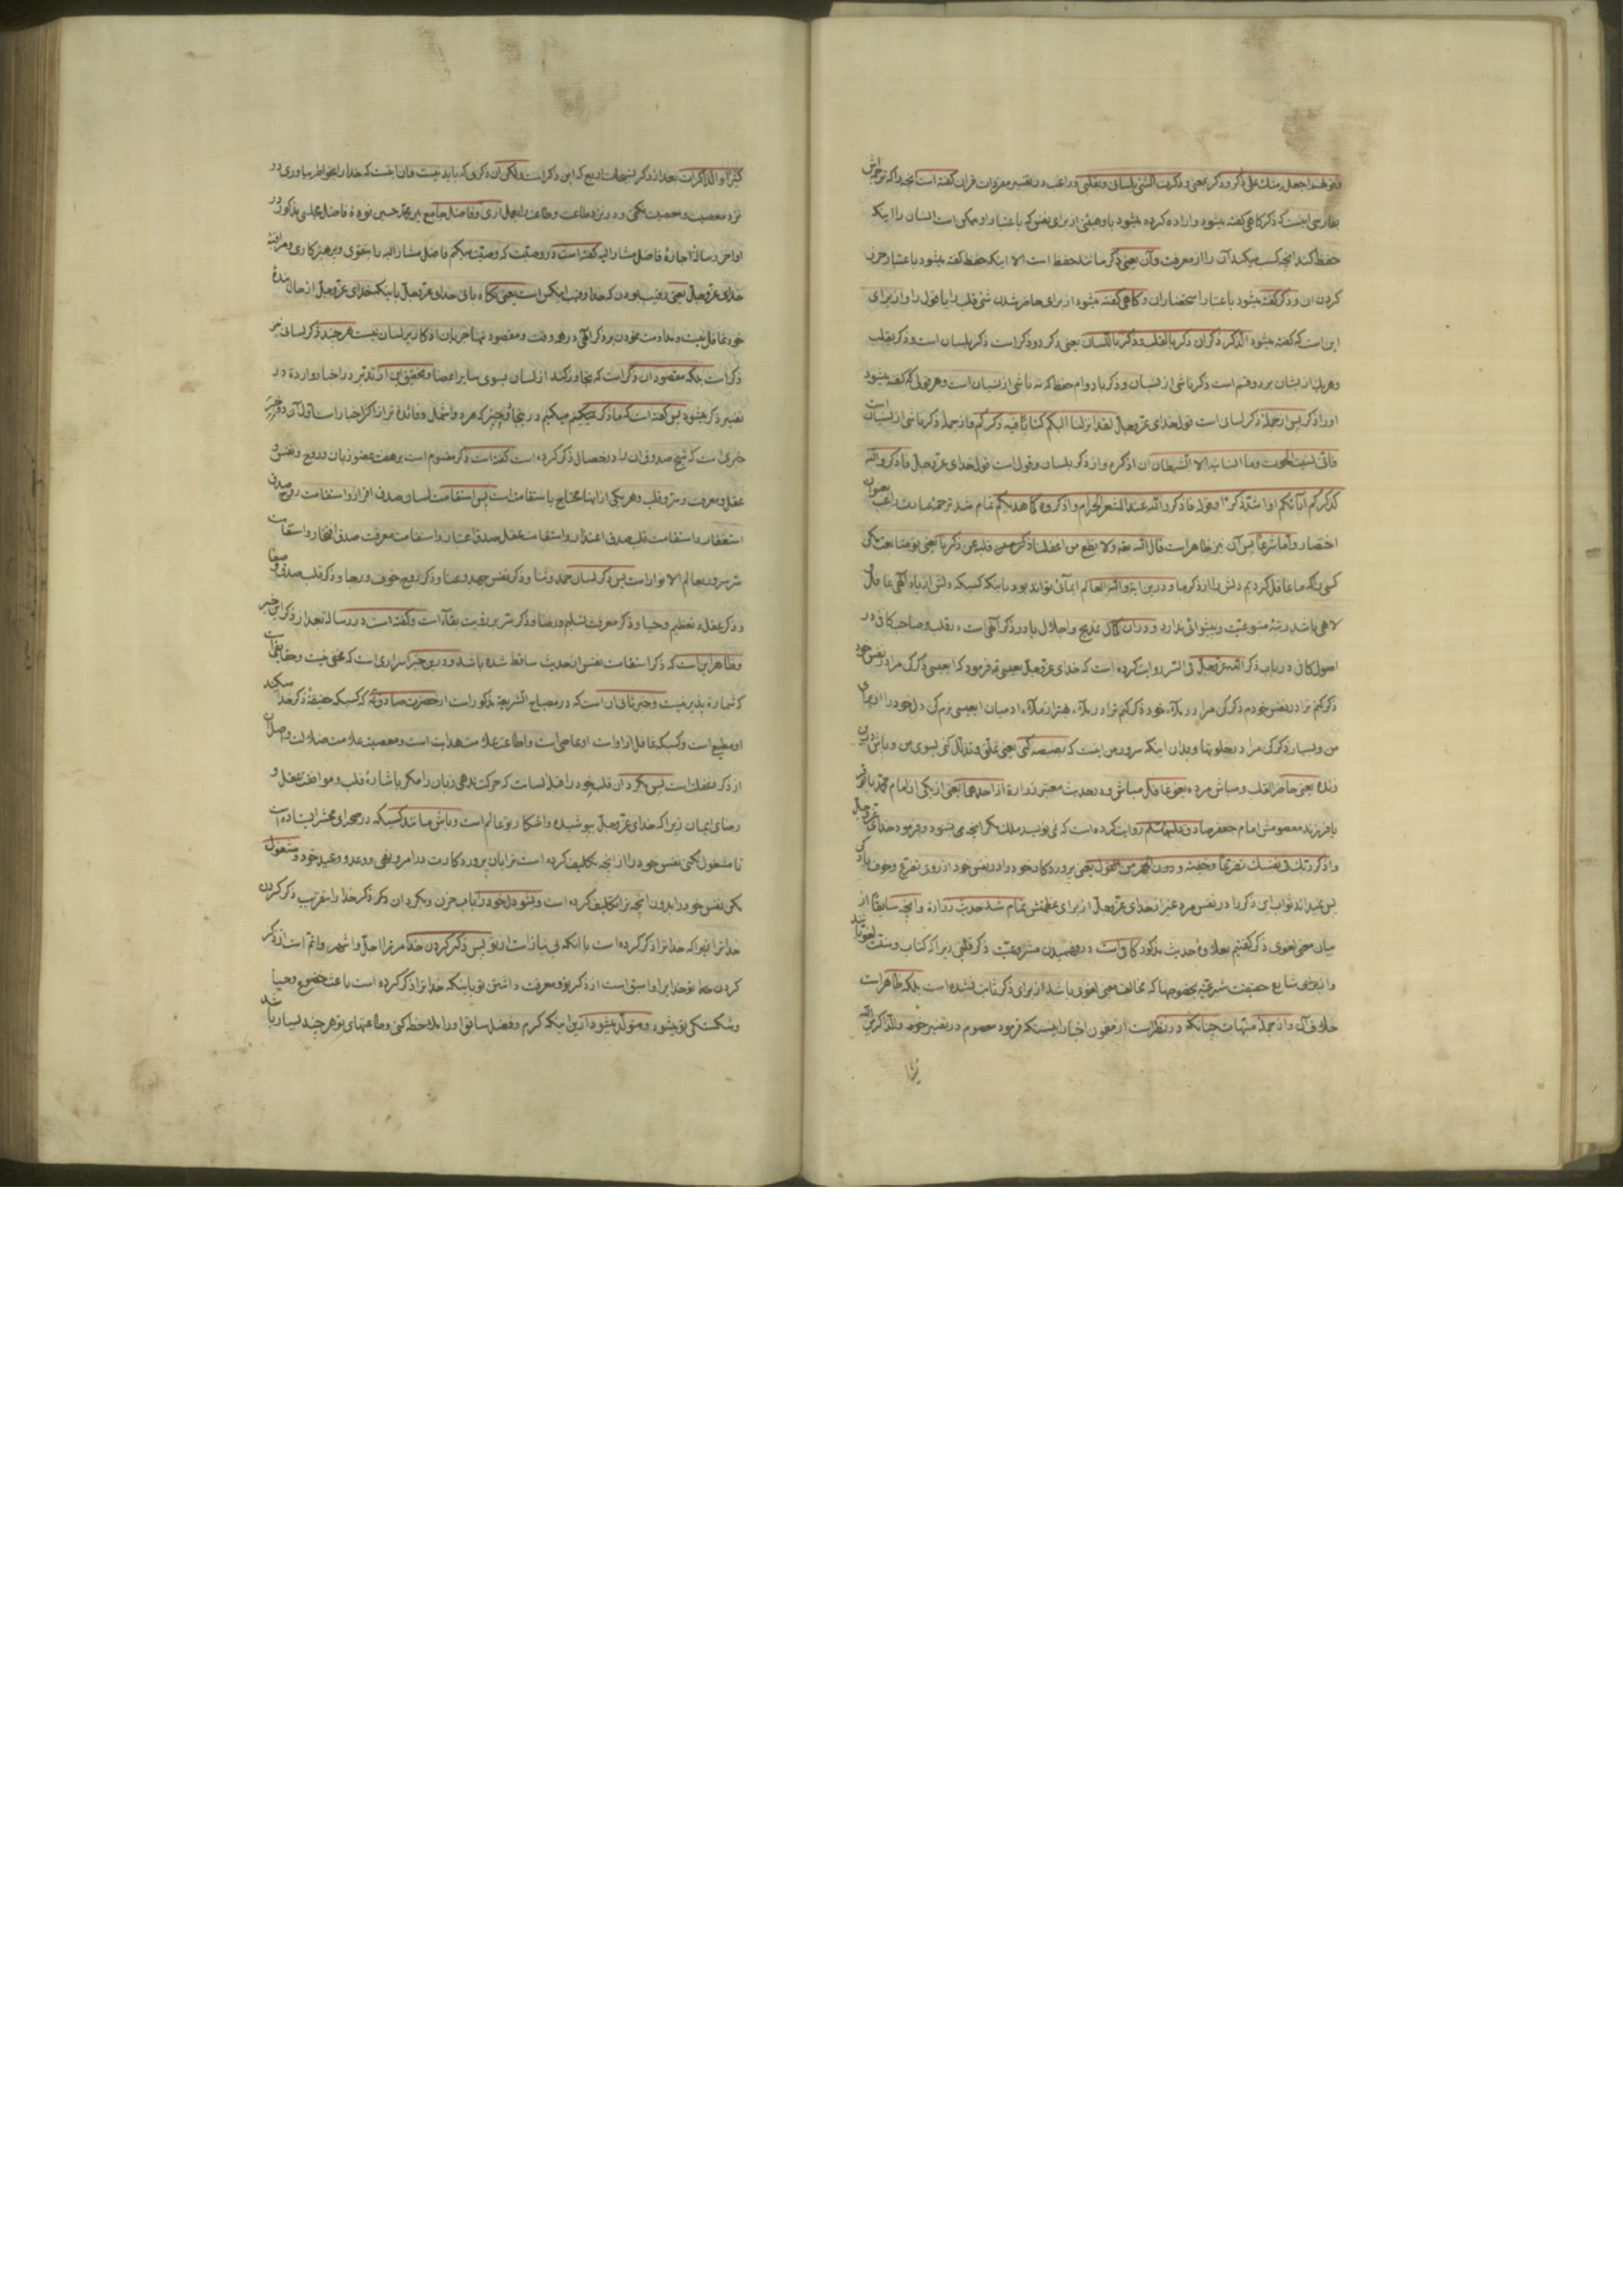 وقولهم اجعل منك علی ذکر وذکر بمعنی وذکرت الشئ بلسانی وبقلبی وراغب در تفسیر مفردات قران گفته است آنچه را که ترجمه اش
بفارسی اینست که ذکر گاهی گفته میشود واراده کرده میشود باو هیئتی از برای نفس که باعتبار او ممکن است انسان را اینکه
حفظ کند آنچه کسب میکند آن را از معرفت وآن یعنی ذکر مانند حفظ است الا اینکه حفظ گفته میشود باعتبار حرز
کردن ان وذکر گفته میشود باعتبار استحضار ان وگاهی گفته میشود از برای حاضر شدن شئ قلب را یا قول را واز برای
این است که گفته میشود الذکر ذکران ذکر بالقلب وذکر باللسان یعنی ذکر دو ذکر است ذکر بلسان است وذکر بقلب
وهر یک از ایشان بر دو قسم است ذکر ناشی از نسیان وذکر با دوام حفظ که نه ناشی از نسیان است وهر قولی که گفته میشود
او را ذکر پس از جمله ذکر لسانی است قول خدای عزوجل لقد انزلنا الیکم کتابا فیه ذکرکم واز جمله ذکر ناشی از نسیان است
فانی نسیت الحوت وما انسانیه الا الشیطان ان اذکره واز ذکر بلسان وقول است قول خدای عزوجل فاذکروا الله
کذکرکم ابائکم او اشد ذکرا وقوله فاذکروا الله عند المشعر الحرام واذکروه کما هدیکم تمام شد ترجمه عبارت راغب بعنوان
اختصار واما شرعا پس آن نیز ظاهر است قال الله تعه ولا تطع من اغفلنا قلبه عن ذکرنا یعنی تو متابعت مکن
کسی را که ما غافل کردیم دلش را از ذکر ما ودر این ایه والله العالم ایمائی تواند بود باینکه کسیکه دلش از یاد الهی غافل و
لاهی باشد رتبه متبوعیت وپیشوائی ندارد ودر ان کمال مدیح واجلال یاد وذکر الهی است در قلب وصاحب کافی در
اصول کافی در باب ذکر الله عزوجل فی السر روایت کرده است که خدای عزوجل بعیسی ع فرمود که ایعیسی ذکر کن مرا در نفس خود
ذکر کنم ترا در نفس خودم ذکر کن مرا در ملأ خود ذکر کنم ترا در ملأ بهتر از ملأ ادمیان ایعیسی نرم کن دل خود را از برای
من وبسیار ذکر کن مرا در خلوتها وبدان اینکه سرور من اینست که بصبصه کنی یعنی تملق وتذلل کنی بسوی من وباش در ان
زنده یعنی حاضر القلب ومباش مرده یعنی غافل مباش ودر حدیث معتبر زراره از احدهما یعنی از یکی از امام محمد باقر
یا فرزند معصومش امام جعفر صادق علیهما السلم روایت کرده است که نمی نویسد ملک مگر آنچه می شنود وفرمود خدای عزوجل
واذکر ربک فی نفسک تضرعا وخیفة ودون الجهر من القول یعنی پروردگار خود را در نفس خود از روی تضرع وخوف یاد کن
پس نمیداند ثواب این ذکر را در نفس مرد غیر از خدای عزوجل از برای عظمتش تمام شد حدیث زراره وانچه سابقا از
بیان معنی لغوی ذکر گفتیم بعلاوهٔ حدیث مذکور کافی است در فهمیدن مشروعیت ذکر قلبی زیرا که کتاب وسنت لغویانند
حقیقت شرعیه بخصوصها که مخالف معنی لغوی باشد از برای ذکر ثابت نشده است بلکه ظاهر است
خلاف آن واز جمله منبهات چنانکه در نظر است از مضمون اخبار اینست که فرمود معصوم در تفسیر والذاکرین الله
کثیرا والذاکرات بعد از ذکر تسبیحات اربع که این ذکر است ولکن آن ذکری که باید نیست وان اینست که خدا را بخاطر بیاوری در
نزد معصیت ومعصیت نکنی ودر نزد طاعت وطاعت را بعمل اری وفاضل جامع میر محمد حسین نوادهٔ فاضل مجلسی مذکور در
اواخر رسالهٔ اجازهٔ فاضل مشار الیه گفته است در وصیت که وصیت میکنم فاضل مشار الیه را بتقوی وپرهیزکاری ومراقبهٔ
خدای عزوجل یعنی رقیب بودن که خدا رقیب هر کس است یعنی نگاه بانی خدای عزوجل باینکه خدای عزوجل از حال بندهٔ
خود غافل نیست ومداومت نمودن بر ذکر الهی در هر وقت ومقصود تنها جریان اذکار بر لسان نیست هر چند ذکر لسانی نیز
ذکر است بلکه مقصود ان ذکر است که تجاوز کند از لسان بسوی سایر اعضا وتحقیق این از تدبر در اخبار وارده در
تفسیر ذکر میشود پس گفته است که ما ذکر میکنیم در اینجا دو خبر که هر دو اشمل وفائدهٔ تر از اکثر اخبار است اول آن دو خبر
خبری است که شیخ صدوق ان را در خصال ذکر کرده است گفته است ذکر مقسوم است بر هفت عضو زبان وروح ونفس و
عقل ومعرفت وسر وقلب وهر یکی از اینها محتاج باستقامت است پس استقامت لسان صدق اقرار واستقامت روح صدق
استغفار واستقامت قلب صدق اعتذار واستقامت عقل صدق اعتبار واستقامت معرفت صدق افتخار واستقامت
سر سرور بعالم الاسرار است پس ذکر لسان حمد وثنا وذکر نفس جهد وعنا وذکر روح خوف ورجا وذکر قلب صدق وصفا
وذکر عقل تعظیم وحیا وذکر معرفت تسلیم ورضا وذکر سر بر رؤیت لقاء است وگفته است در رساله بعد از ذکر این خبر
وظاهر این است که ذکر استقامت نفس از حدیث ساقط شده باشد ودر این خبر اسراری است که مخفی نیست وحقایقی است
که شماره پذیر نیست وخبر ثانی ان است که در مصباح الشریعة مذکور است از حضرت صادق ع که کسیکه حقیقة ذکر خدا میکند
او مطیع است وکسیکه غافل از او است او عاصی است واطاعت علامت هدایت است ومعصیت علامت ضلالت واصل ان
از ذکر وغفلت است پس بگردان قلب خود را قبله لسانت که حرکت ندهی زبان را مگر باشارهٔ قلب وموافقت عقل و
رضای ایمان زیرا که خدای عزوجل بپوشیده واشکار تو عالم است وباش مانند کسیکه در صحرای محشر ایستاده است
تا مشغول نکنی نفس خود را از آنچه تکلیف کرده است ترا بان پروردگارت در امر ونهی ووعد ووعید خود ومشغول
مکن نفس خود را بدون انچه ترا تکلیف کرده است وبشوی دل خود را باب حزن وبگردان ذکر خدا را بتقریب ذکر کردن
خدا ترا زیرا که خدا ترا ذکر کرده است با آنکه بی نیاز است از تو پس ذکر کردن خدا مر ترا اجل واشهر واتم است از ذکر
کردن تو خدا را واسبق است از ذکر تو ومعرفت داشتن تو باینکه خدا ترا ذکر کرده است باعث خضوع وحیا
وشکستگی تو میشود ومتولد میشود از این اینکه کرم وفضل سابق او را ملاحظه کنی وطاعتهای تو هر چند بسیار باشد